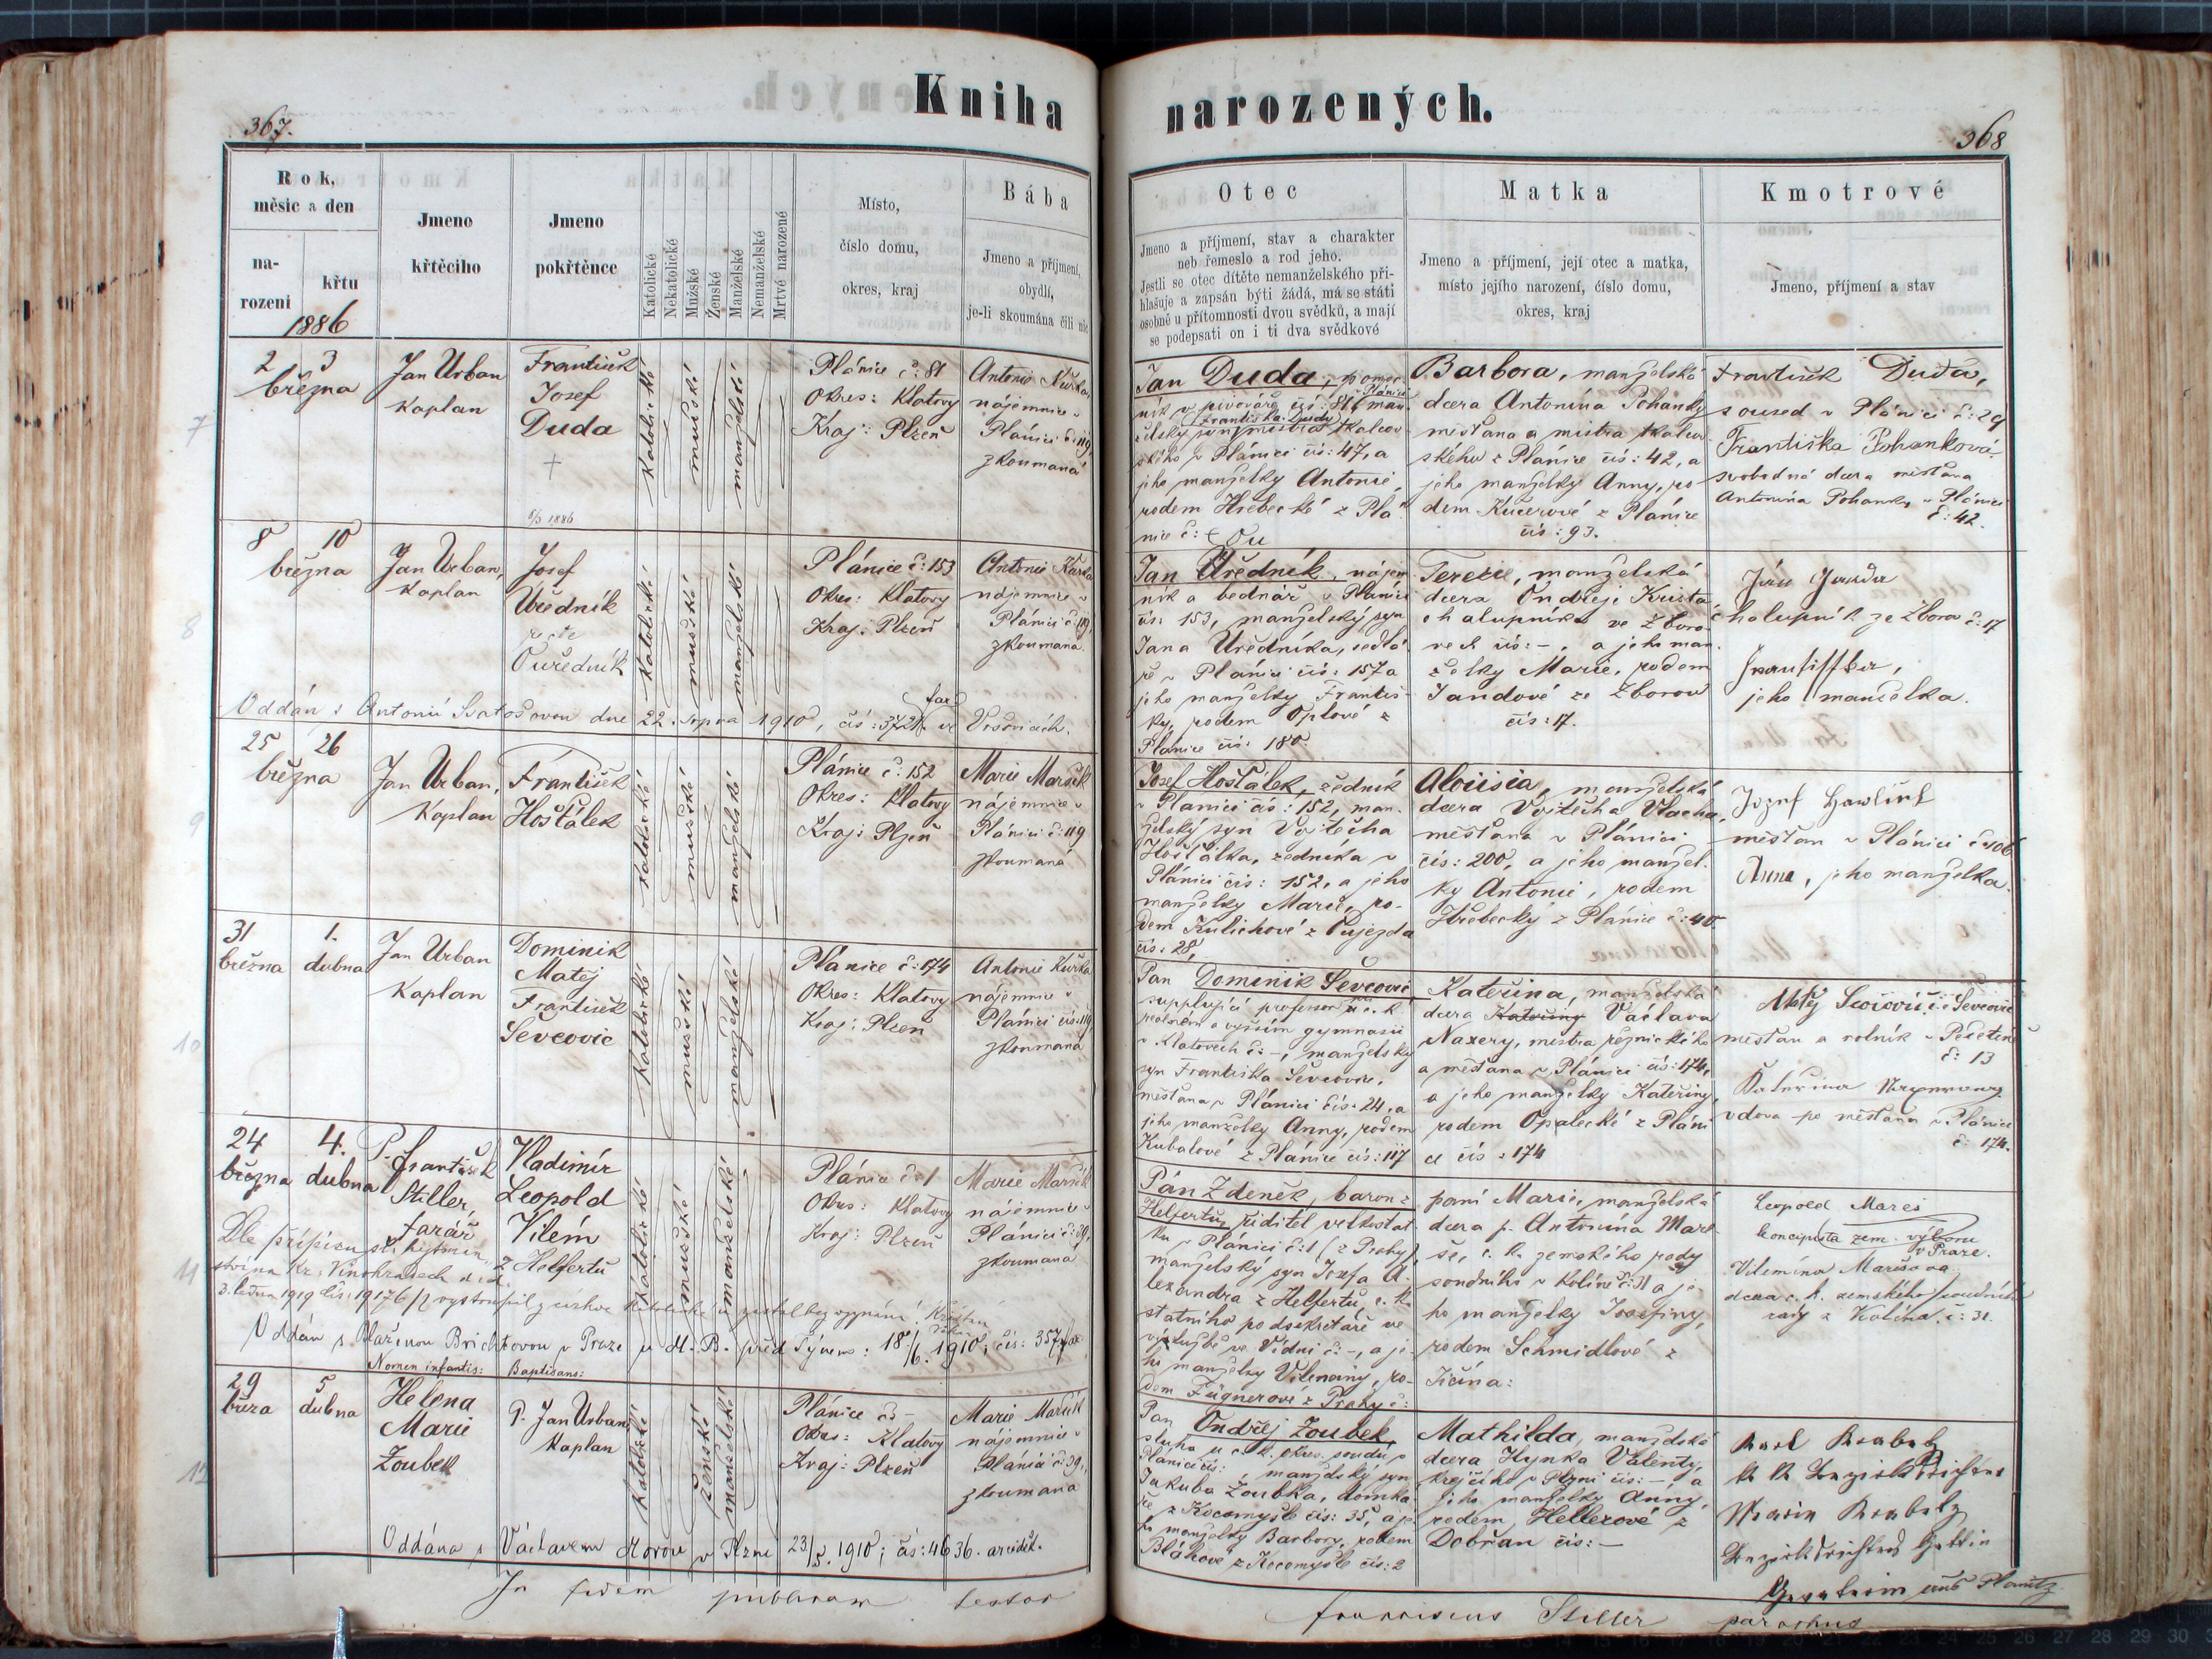 Kniha
367.
Rok,
měsíc a den
na-
rození
křtu
1886
Jmeno
křtěcího
Jmeno
pokřtěnce
Katolické
Nekatolické
Mužské
Ženské
Manželské
Nemanželské
Mrtvé narozené
Místo,
číslo domu,
okres, kraj
Bába
Jmeno a příjmení,
obydlí,
je-li skoumána čili nic
7
2 3
března
Jan Urban
Kaplan
František
Josef
Duda
+
6/3 1886
katolické
mužské
manželské
Plánice č: 81
Okres: Klatovy
Kraj: Plzeň
Antonie Kůrka
nájemnice v
Plánici č: 119,
zkoumaná
8
8 10
března
Jan Urban,
Kaplan
Josef
Úředník
recte
Ouředník
katolické
mužské
manželské
Plánice č: 153
Okres: Klatovy
Kraj: Plzeň
Antonie Kůrka
nájemnice v
Plánici č: 119,
zkoumaná.
Oddán s Antonií Svatošovou dne 22. srpna 1910, čís: 3721. far. ve Vršovicích.
9
25 26
března
Jan Urban,
Kaplan
František
Hošťálek
katolické
mužské
manželské
Plánice č: 152
Okres: Klatovy
Kraj: Plzeň
Marie Maršík
nájemnice v
Plánici č: 119
zkoumaná
10
31 1.
března dubna
Jan Urban
Kaplan
Dominik
Matěj
František
Ševcovic
katolické
mužské
manželské
Plánice č: 174
Okres: Klatovy
Kraj: Plzeň
Antonie Kůrka
nájemnice v
Plánici čís: 119,
zkoumaná
11
24 4.
března dubna
P. František
Stiller,
farář
Vladimír
Leopold
Vilém
z Helfertů
katolické
mužské
manželské
Plánice č: 1
Okres: Klatovy
Kraj: Plzeň
Marie Maršík
nájemnice v
Plánici č: 39,
zkoumaná
Dle přípisu
Kr. Vinohradech d. d.
3. ledna 1919 čís: 19176/ vystoupil z církve katolické a zůstal bez vyznání.
Oddán s Blaženou Brichtovou v Praze u M. B. před Týnem: 18/6. 1910, čís: 357 far.
Nomen infantis: Baptisans:
12
29 5
břez̄a dubna
Helena
Marie
Zoubek
P. Jan Urban,
Kaplan
katolické
ženské
manželské
Plánice č: -
Okres: Klatovy
Kraj: Plzeň
Marie Maršík
nájemnice v
Plánici č: 39,
zkoumaná
Oddána s Václavem Horou v Plzni 23/5. 1910; čís: 4636. arciděk.
In fidem publicam testor
narozených.
368
Otec
Jmeno a příjmení, stav a charakter
neb řemeslo a rod jeho.
Jestli se otec dítěte nemanželského při-
hlašuje a zapsán býti žádá, má se státi
osobně u přítomnosti dvou svědků, a mají
se podepsati on i ti dva svědkové
Matka
Jmeno a příjmení, její otec a matka,
místo jejího narození, číslo domu,
okres, kraj
Kmotrové
Jmeno, příjmení a stav
Jan Duda, pomoc-
ník v pivováře v Plánici čís: 81 man-
želský syn Františka Dudy mistra tkalcov-
ského v Plánici čís: 47, a
jeho manželky Antonie,
rodem Hřebecké z Plá-
nice č:
Barbora, manželská
dcera Antonína Pohanky
měšťana a mistra tkalcov-
ského z Plánice čís: 42, a
jeho manželky Anny, ro-
dem Kučerové z Plánice
čís: 93.
František Duda,
soused v Plánici č: 29
Františka Pohanková
svobodná dcera měšťana
Antonína Pohanky v Plánici
č: 42.
Jan Úředník, nájem-
ník a bednář v Plánici
čís: 153, manželský syn
Jana Úředníka, sedlá-
ře v Plánici čís: 157 a
jeho manželky Františ-
ky, rodem Oplové z
Plánice čís: 180.
Terezie, manželská
dcera Ondřeje Krista
chalupníka ve Zboro-
vech čís: -, a jeho man-
želky Marie, rodem
Jandové ze Zborov
čís: 17.
Jan Janda
chalupník ze Zborov č: 17
Frantiska,
jeho manželka.
Josef Hošťálek, zedník
v Plánici čís: 152, man-
želský syn Vojtěcha
Hošťálka, zedníka v
Plánici čís: 152, a jeho
manželky Marie, ro-
dem Kulichové z Oujezda
čís: 28,
Aloisia, manželská
dcera Vojtěcha Vlacha,
měšťana v Plánici
čís: 200, a jeho manžel-
ky Antonie, rodem
Hřebecky z Plánice č: 40.
Josef Hawlick
měšťan v Plánici č: 106
Anna, jeho manželka.
Pan Dominik Ševcovic
supplující professor na c. k.
reálném a vyšším gymnasii
v Klatovech č: -, manželský
syn Františka Ševcovic,
měšťana v Plánici čís: 24, a
jeho manželky Anny, rodem
Kubalové z Plánice čís: 117
Kateřina, manželská
dcera Kateřiny Václava
Naxery, mistra řeznického
a měšťana v Plánici čís: 174,
a jeho manželky Kateřiny,
rodem Opalecké z Pláni-
ce čís: 174
Matěj Ševcovic
měšťan a rolník v Pečetíně
č: 13
Kateřina
vdova po měšťanu v Plánici
č: 174.
Pán Zdeněk, baron z
Helfertů, ředitel velkostat-
ku v Plánici č: 1 (z Prahy),
manželský syn Josefa A-
lexandra z Helfertů, c. k.
státního podsekretáře ve
výslužbě ve Vídni č: -, a je-
ho manželky Vilemíny, ro-
dem Fügnerové z Prahy č:
paní Marie, manželská
dcera p. Antonína Mare-
še, c. k. zemského rady
soudního v Kolíně č: 31 a je-
ho manželky Josefiny,
rodem Schmidlové z
Jičína:
Leopold Mareš
koncipista zem. výboru
v Praze.
Vilemína Marešova
dcera c. k. zemského soudního
rady z Kolína. č: 31.
Pan Ondřej Zoubek
sluha u c. k. okres. soudu v
Plánici čís: manželský syn
Jakuba Zoubka, domka-
ře z Kocomyšle čís: 35, a je-
ho manželky Barbory, rodem
Bláhové z Kocomyšle čís: 2
Mathilda, manželská
dcera Hynka Valenty,
krejčího v Plzni čís: - a
jeho manželky Anny,
rodem Hellerové z
Dobřan čís: -
Karl
K. K. Bezirksrichter
Maria
Bezirksrichters Gattin
aus Planitz
Franciscus Stiller parochus